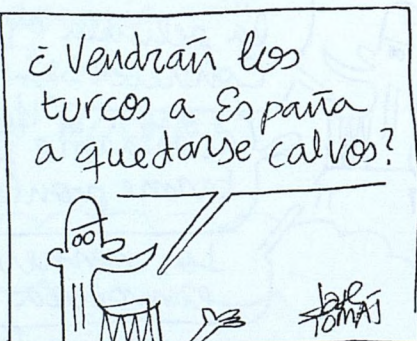 ¿Vendrán los
turcos a España
a quedarse calvos?
TOMÁS